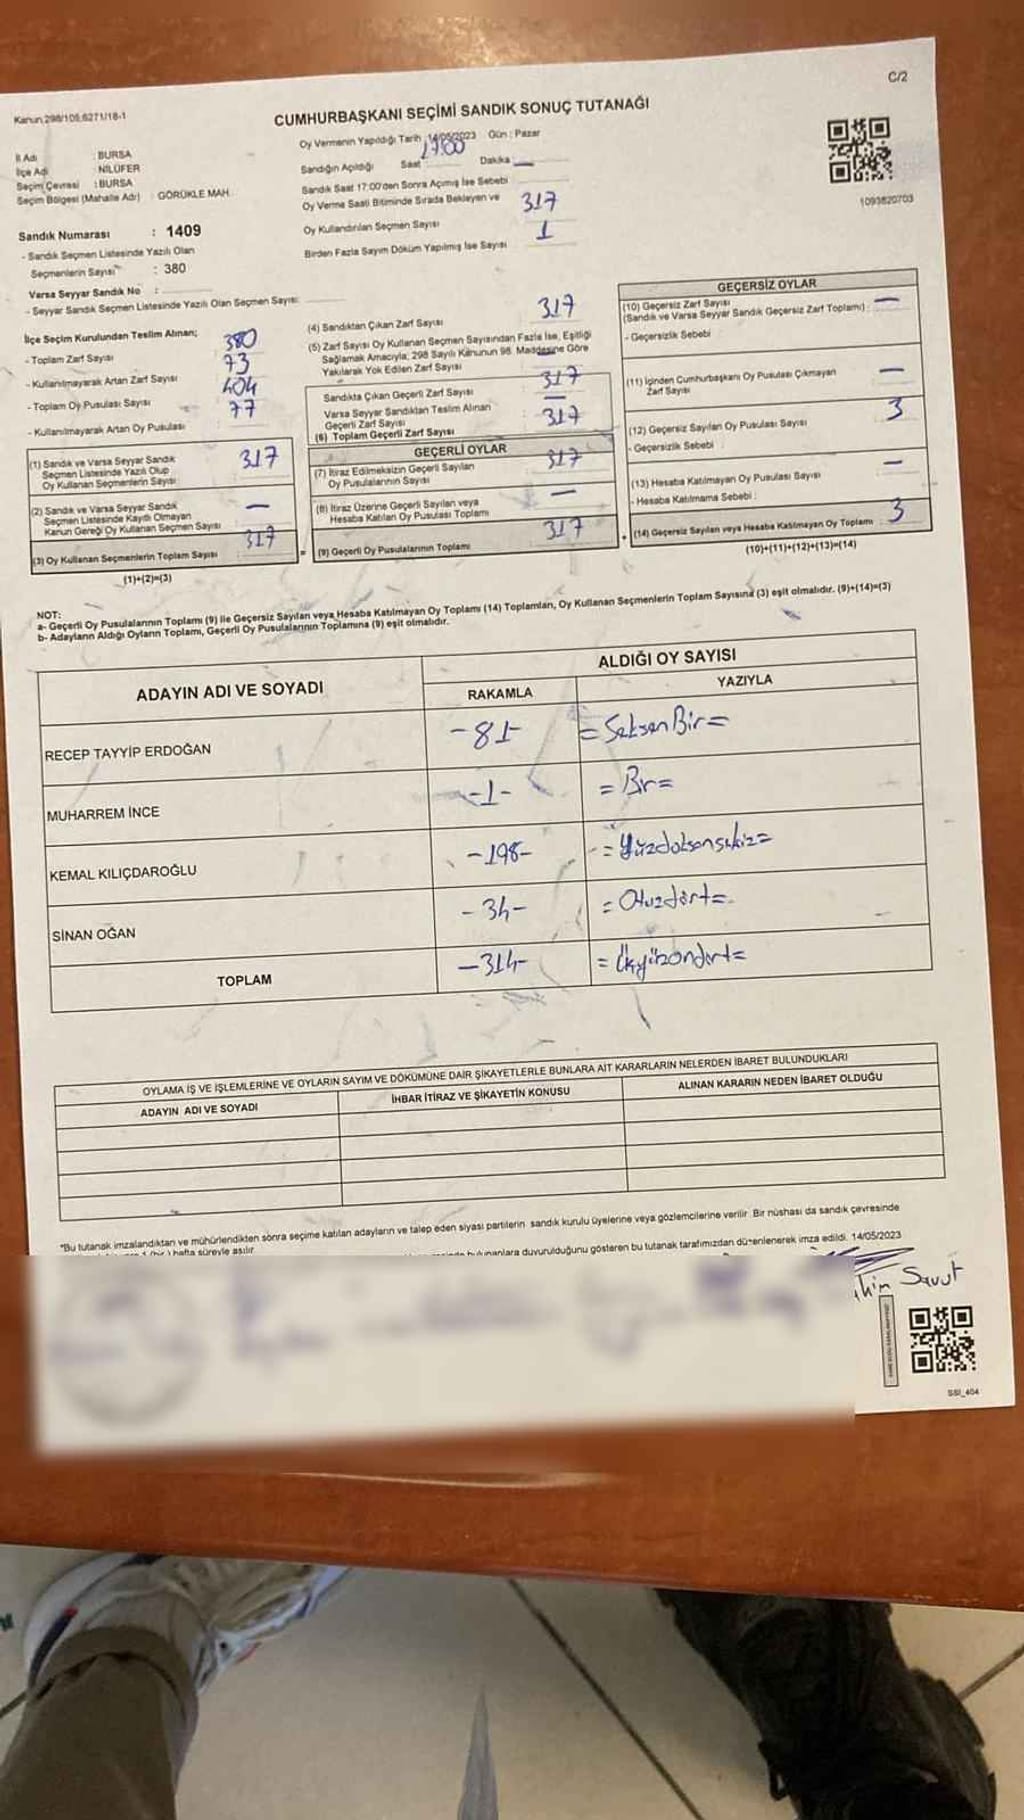 C/2
Kanun:298/105,6271/18-1
CUMHURBAŞKANI SEÇİMİ SANDIK SONUÇ TUTANAĞI
İl Adı : BURSA
İlçe Adı : NİLÜFER
Seçim Çevresi : BURSA
Seçim Bölgesi (Mahalle Adı) : GÖRÜKLE MAH.
Sandık Numarası : 1409
- Sandık Seçmen Listesinde Yazılı Olan
Seçmenlerin Sayısı : 380
Varsa Seyyar Sandık No :
- Seyyar Sandık Seçmen Listesinde Yazılı Olan Seçmen Sayısı:
Oy Vermenin Yapıldığı Tarih : 14/05/2023 Gün : Pazar
Sandığın Açıldığı Saat 17:00 Dakika —
Sandık Saat 17:00'den Sonra Açımış İse Sebebi
Oy Verme Saati Bitiminde Sırada Bekleyen ve
Oy Kullandırılan Seçmen Sayısı 317
Birden Fazla Sayım Döküm Yapılmış İse Sayısı 1
1093820703
İlçe Seçim Kurulundan Teslim Alınan;
- Toplam Zarf Sayısı 380
- Kullanılmayarak Artan Zarf Sayısı 73
- Toplam Oy Pusulası Sayısı 404
- Kullanılmayarak Artan Oy Pusulası 77
(1) Sandık ve Varsa Seyyar Sandık
Seçmen Listesinde Yazılı Olup
Oy Kullanan Seçmenlerin Sayısı 317
(2) Sandık ve Varsa Seyyar Sandık
Seçmen Listesinde Kayıtlı Olmayan
Kanun Gereği Oy Kullanan Seçmen Sayısı —
(3) Oy Kullanan Seçmenlerin Toplam Sayısı 317
(1)+(2)=(3)
(4) Sandıktan Çıkan Zarf Sayısı 317
(5) Zarf Sayısı Oy Kullanan Seçmen Sayısından Fazla İse, Eşitliği
Sağlamak Amacıyla; 298 Sayılı Kanunun 98. Maddesine Göre
Yakılarak Yok Edilen Zarf Sayısı —
Sandıkta Çıkan Geçerli Zarf Sayısı 317
Varsa Seyyar Sandıktan Teslim Alınan
Geçerli Zarf Sayısı —
(6) Toplam Geçerli Zarf Sayısı 317
GEÇERLİ OYLAR
(7) İtiraz Edilmeksizin Geçerli Sayılan
Oy Pusulalarının Sayısı 317
(8) İtiraz Üzerine Geçerli Sayılan veya
Hesaba Katılan Oy Pusulası Toplamı —
= (9) Geçerli Oy Pusulalarının Toplamı 317
GEÇERSİZ OYLAR
(10) Geçersiz Zarf Sayısı
(Sandık ve Varsa Seyyar Sandık Geçersiz Zarf Toplamı) : —
- Geçersizlik Sebebi
(11) İçinden Cumhurbaşkanı Oy Pusulası Çıkmayan
Zarf Sayısı —
(12) Geçersiz Sayılan Oy Pusulası Sayısı 3
- Geçersizlik Sebebi :
(13) Hesaba Katılmayan Oy Pusulası Sayısı —
- Hesaba Katılmama Sebebi :
+ (14) Geçersiz Sayılan veya Hesaba Katılmayan Oy Toplamı 3
(10)+(11)+(12)+(13)=(14)
NOT:
a- Geçerli Oy Pusulalarının Toplamı (9) ile Geçersiz Sayılan veya Hesaba Katılmayan Oy Toplamı (14) Toplamları, Oy Kullanan Seçmenlerin Toplam Sayısına (3) eşit olmalıdır. (9)+(14)=(3)
b- Adayların Aldığı Oyların Toplamı, Geçerli Oy Pusulalarının Toplamına (9) eşit olmalıdır.
ADAYIN ADI VE SOYADI
ALDIĞI OY SAYISI
RAKAMLA
YAZIYLA
RECEP TAYYİP ERDOĞAN -81- =SeksenBir=
MUHARREM İNCE -1- =Bir=
KEMAL KILIÇDAROĞLU -198- =Yüzdoksansekiz=
SİNAN OĞAN -34- =Otuzdört=
TOPLAM -314- =Üçyüzondört=
OYLAMA İŞ VE İŞLEMLERİNE VE OYLARIN SAYIM VE DÖKÜMÜNE DAİR ŞİKAYETLERLE BUNLARA AİT KARARLARIN NELERDEN İBARET BULUNDUKLARI
ADAYIN ADI VE SOYADI
İHBAR İTİRAZ VE ŞİKAYETİN KONUSU
ALINAN KARARIN NEDEN İBARET OLDUĞU
*Bu tutanak imzalandıktan ve mühürlendikten sonra seçime katılan adayların ve talep eden siyasi partilerin sandık kurulu üyelerine veya gözlemcilerine verilir. Bir nüshası da sandık çevresinde
1 (bir) hafta süreyle asılır.
bulunanlara duyurulduğunu gösteren bu tutanak tarafımızdan düzenlenerek imza edildi. 14/05/2023
SSI_404